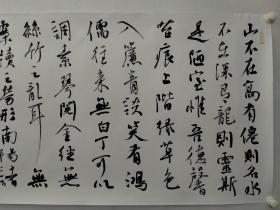 山不在高有僊則名水
不在深有龍則靈斯
是陋室惟吾德馨
苔痕上階緑草色
入簾青談笑有鴻
儒往來無白丁可以
調素琴閲金經無
絲竹之亂耳無
案牘之勞形南陽諸